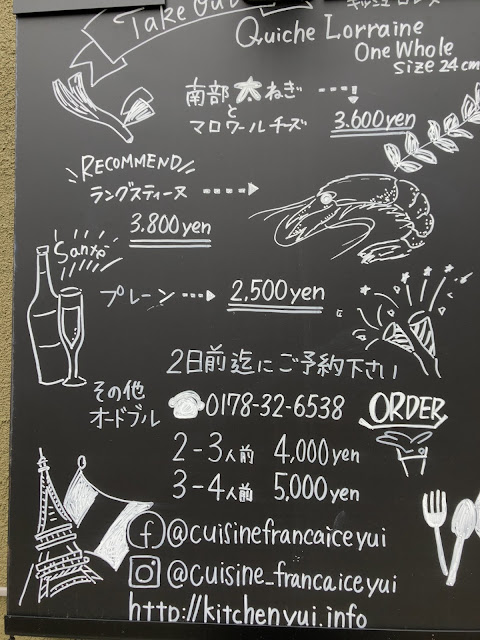 Take Out
キッシュロレーヌ
Quiche Lorraine
One Whole
size 24cm
南部太ねぎ
と
マロワールチーズ 3.600yen
RECOMMEND
ラングスティーヌ
3.800yen
Santé
プレーン 2,500yen
2日前迄にご予約下さい
その他
オードブル
☎0178-32-6538
ORDER
2-3人前 4,000yen
3-4人前 5,000yen
f@cuisinefrancaiceyui
@cuisine_francaiceyui
http://kitchenyui.info